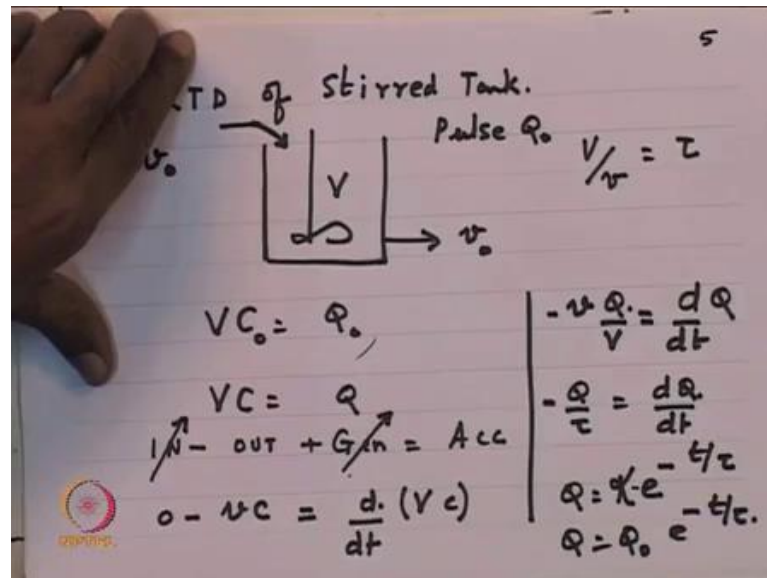 5
TD of Stirred Tank.
Pulse Q₀
V/v = τ
v₀
V
v₀
VC₀ = Q₀,
VC = Q
IN - OUT + Gen = Acc
0 - vC = d/dt (VC)
-v Q/V = dQ/dt
-Q/τ = dQ/dt
Q = K e^-t/τ
Q = Q₀ e^-t/τ.